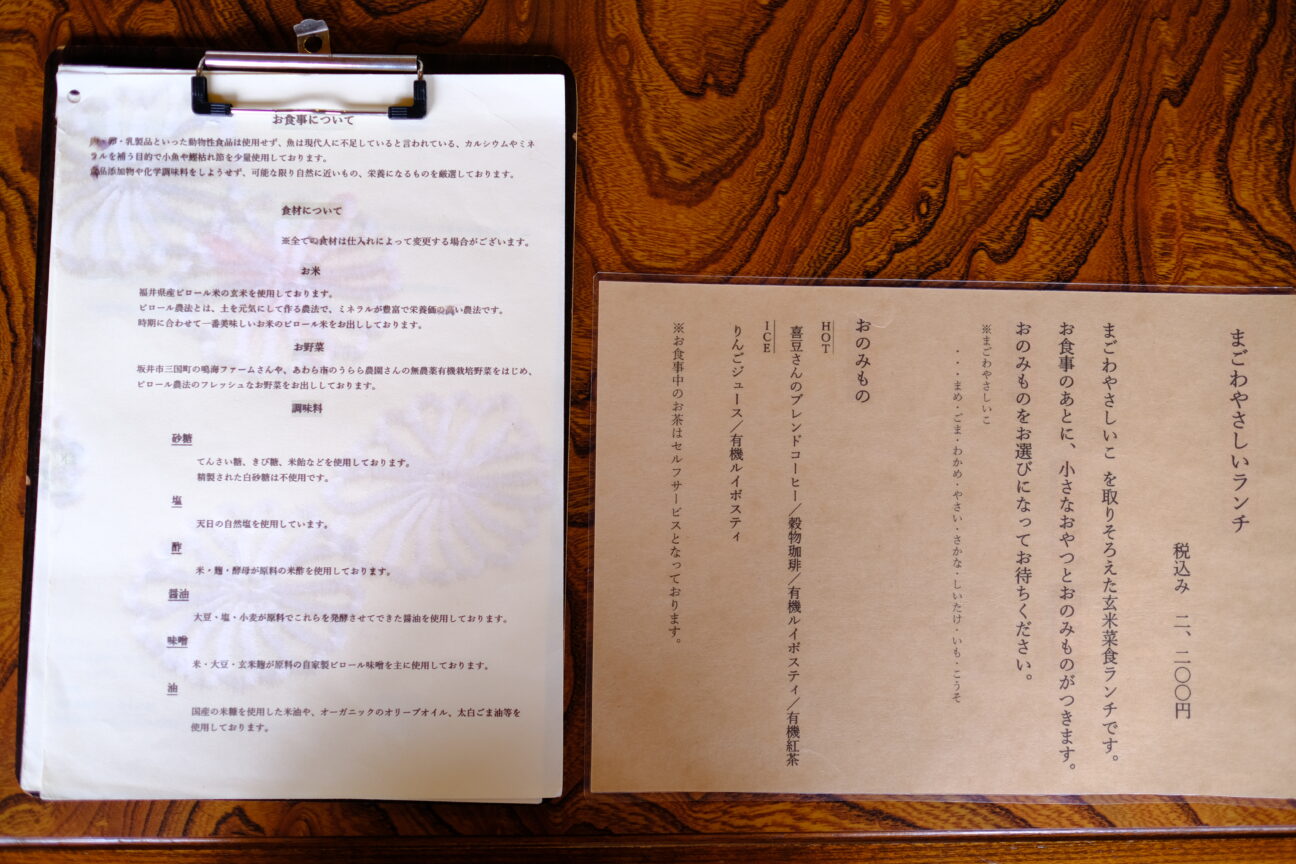 お食事について
肉・卵・乳製品といった動物性食品は使用せず、魚は現代人に不足していると言われている、カルシウムやミネ
ラルを補う目的で小魚や鰹枯れ節を少量使用しております。
食品添加物や化学調味料をしようせず、可能な限り自然に近いもの、栄養になるものを厳選しております。
食材について
※全ての食材は仕入れによって変更する場合がございます。
お米
福井県産ピロール米の玄米を使用しております。
ピロール農法とは、土を元気にして作る農法で、ミネラルが豊富で栄養価の高い農法です。
時期に合わせて一番美味しいお米のピロール米をお出ししております。
お野菜
坂井市三国町の鳴海ファームさんや、あわら市のうらら農園さんの無農薬有機栽培野菜をはじめ、
ピロール農法のフレッシュなお野菜をお出ししております。
調味料
砂糖
てんさい糖、きび糖、米飴などを使用しております。
精製された白砂糖は不使用です。
塩
天日の自然塩を使用しています。
酢
米・麹・酵母が原料の米酢を使用しております。
醤油
大豆・塩・小麦が原料でこれらを発酵させてできた醤油を使用しております。
味噌
米・大豆・玄米麹が原料の自家製ピロール味噌を主に使用しております。
油
国産の米糠を使用した米油や、オーガニックのオリーブオイル、太白ごま油等を
使用しております。
まごわやさしいランチ
税込み 二、二〇〇円
まごわやさしいこ を取りそろえた玄米菜食ランチです。
お食事のあとに、小さなおやつとおのみものがつきます。
おのみものをお選びになってお待ちください。
※まごわやさしいこ
・・・まめ・ごま・わかめ・やさい・さかな・しいたけ・いも・こうそ
おのみもの
HOT
喜豆さんのブレンドコーヒー／穀物珈琲／有機ルイボスティ／有機紅茶
ICE
りんごジュース／有機ルイボスティ
※お食事中のお茶はセルフサービスとなっております。